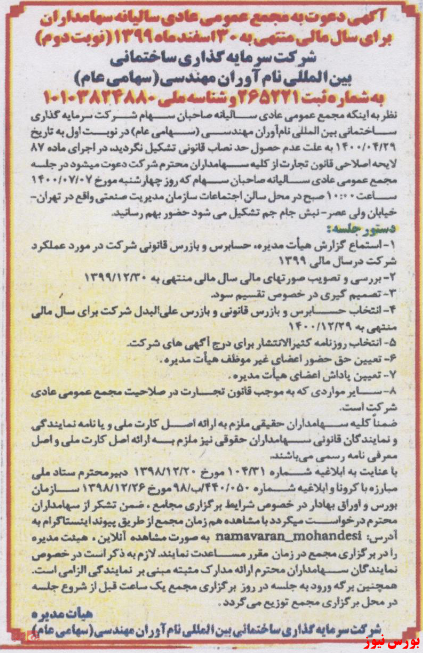 آگهی دعوت به مجمع عمومی عادی سالیانه سهامداران
برای سال مالی منتهی به ۳۰ اسفند ماه ۱۳۹۹ (نوبت دوم)
شرکت سرمایه گذاری ساختمانی
بین المللی نام آوران مهندسی (سهامی عام)
به شماره ثبت ۲۶۵۲۲۱ و شناسه ملی ۱۰۱۰۳۸۲۴۸۸۰
نظر به اینکه مجمع عمومی عادی سالیانه صاحبان سهام شرکت سرمایه گذاری
ساختمانی بین المللی نام آوران مهندسی (سهامی عام) در نوبت اول به تاریخ
۱۴۰۰/۰۴/۲۹ به علت عدم حصول حد نصاب قانونی تشکیل نگردید، در اجرای ماده ۸۷
لایحه اصلاحی قانون تجارت از کلیه سهامداران محترم شرکت دعوت میشود در جلسه
مجمع عمومی عادی سالیانه صاحبان سهام که روز چهارشنبه مورخ ۱۴۰۰/۰۷/۰۷
ساعت ۱۰:۰۰ صبح در محل سالن اجتماعات سازمان مدیریت صنعتی واقع در تهران-
خیابان ولی عصر- نبش جام جم تشکیل می شود حضور بهم رسانید.
دستور جلسه:
۱- استماع گزارش هیأت مدیره، حسابرس و بازرس قانونی شرکت در مورد عملکرد
شرکت در سال مالی ۱۳۹۹
۲- بررسی و تصویب صورتهای مالی سال مالی منتهی به ۱۳۹۹/۱۲/۳۰
۳- تصمیم گیری در خصوص تقسیم سود.
۴- انتخاب حسابرس و بازرس قانونی و بازرس علی‌البدل شرکت برای سال مالی
منتهی به ۱۴۰۰/۱۲/۲۹
۵- انتخاب روزنامه کثیرالانتشار برای درج آگهی های شرکت.
۶- تعیین حق حضور اعضای غیر موظف هیأت مدیره.
۷- تعیین پاداش اعضای هیأت مدیره.
۸- سایر مواردی که به موجب قانون تجارت در صلاحیت مجمع عمومی عادی
شرکت است.
ضمناً کلیه سهامداران حقیقی ملزم به ارائه اصل کارت ملی و یا نامه نمایندگی
و نمایندگان قانونی سهامداران حقوقی نیز ملزم به ارائه اصل کارت ملی و اصل
معرفی نامه رسمی می‌باشند.
با عنایت به ابلاغیه شماره ۱۰۴/۳۱ مورخ ۱۳۹۸/۱۲/۲۰ دبیرمحترم ستاد ملی
مبارزه با کرونا و ابلاغیه شماره ۴۴۰/۰۵۰/ب/۹۸ مورخ ۱۳۹۸/۱۲/۲۶ سازمان
بورس و اوراق بهادار در خصوص شرایط برگزاری مجامع، ضمن تشکر از سهامداران
محترم درخواست میگردد با مشاهده هم زمان مجمع از طریق پیوند اینستاگرام به
آدرس: namavaran_mohandesi به صورت مشاهده آنلاین، هیئت مدیره
را در برگزاری مجمع در زمان مقرر مساعدت نمایند. لازم به ذکر است در خصوص
نمایندگان سهامداران محترم ارائه مدارک مثبته مبنی بر نمایندگی الزامی است.
همچنین برگه ورود به جلسه در روز برگزاری مجمع یک ساعت قبل از شروع جلسه
در محل برگزاری مجمع توزیع می گردد.
هیأت مدیره
شرکت سرمایه گذاری ساختمانی بین المللی نام آوران مهندسی (سهامی عام)
بورس نیوز